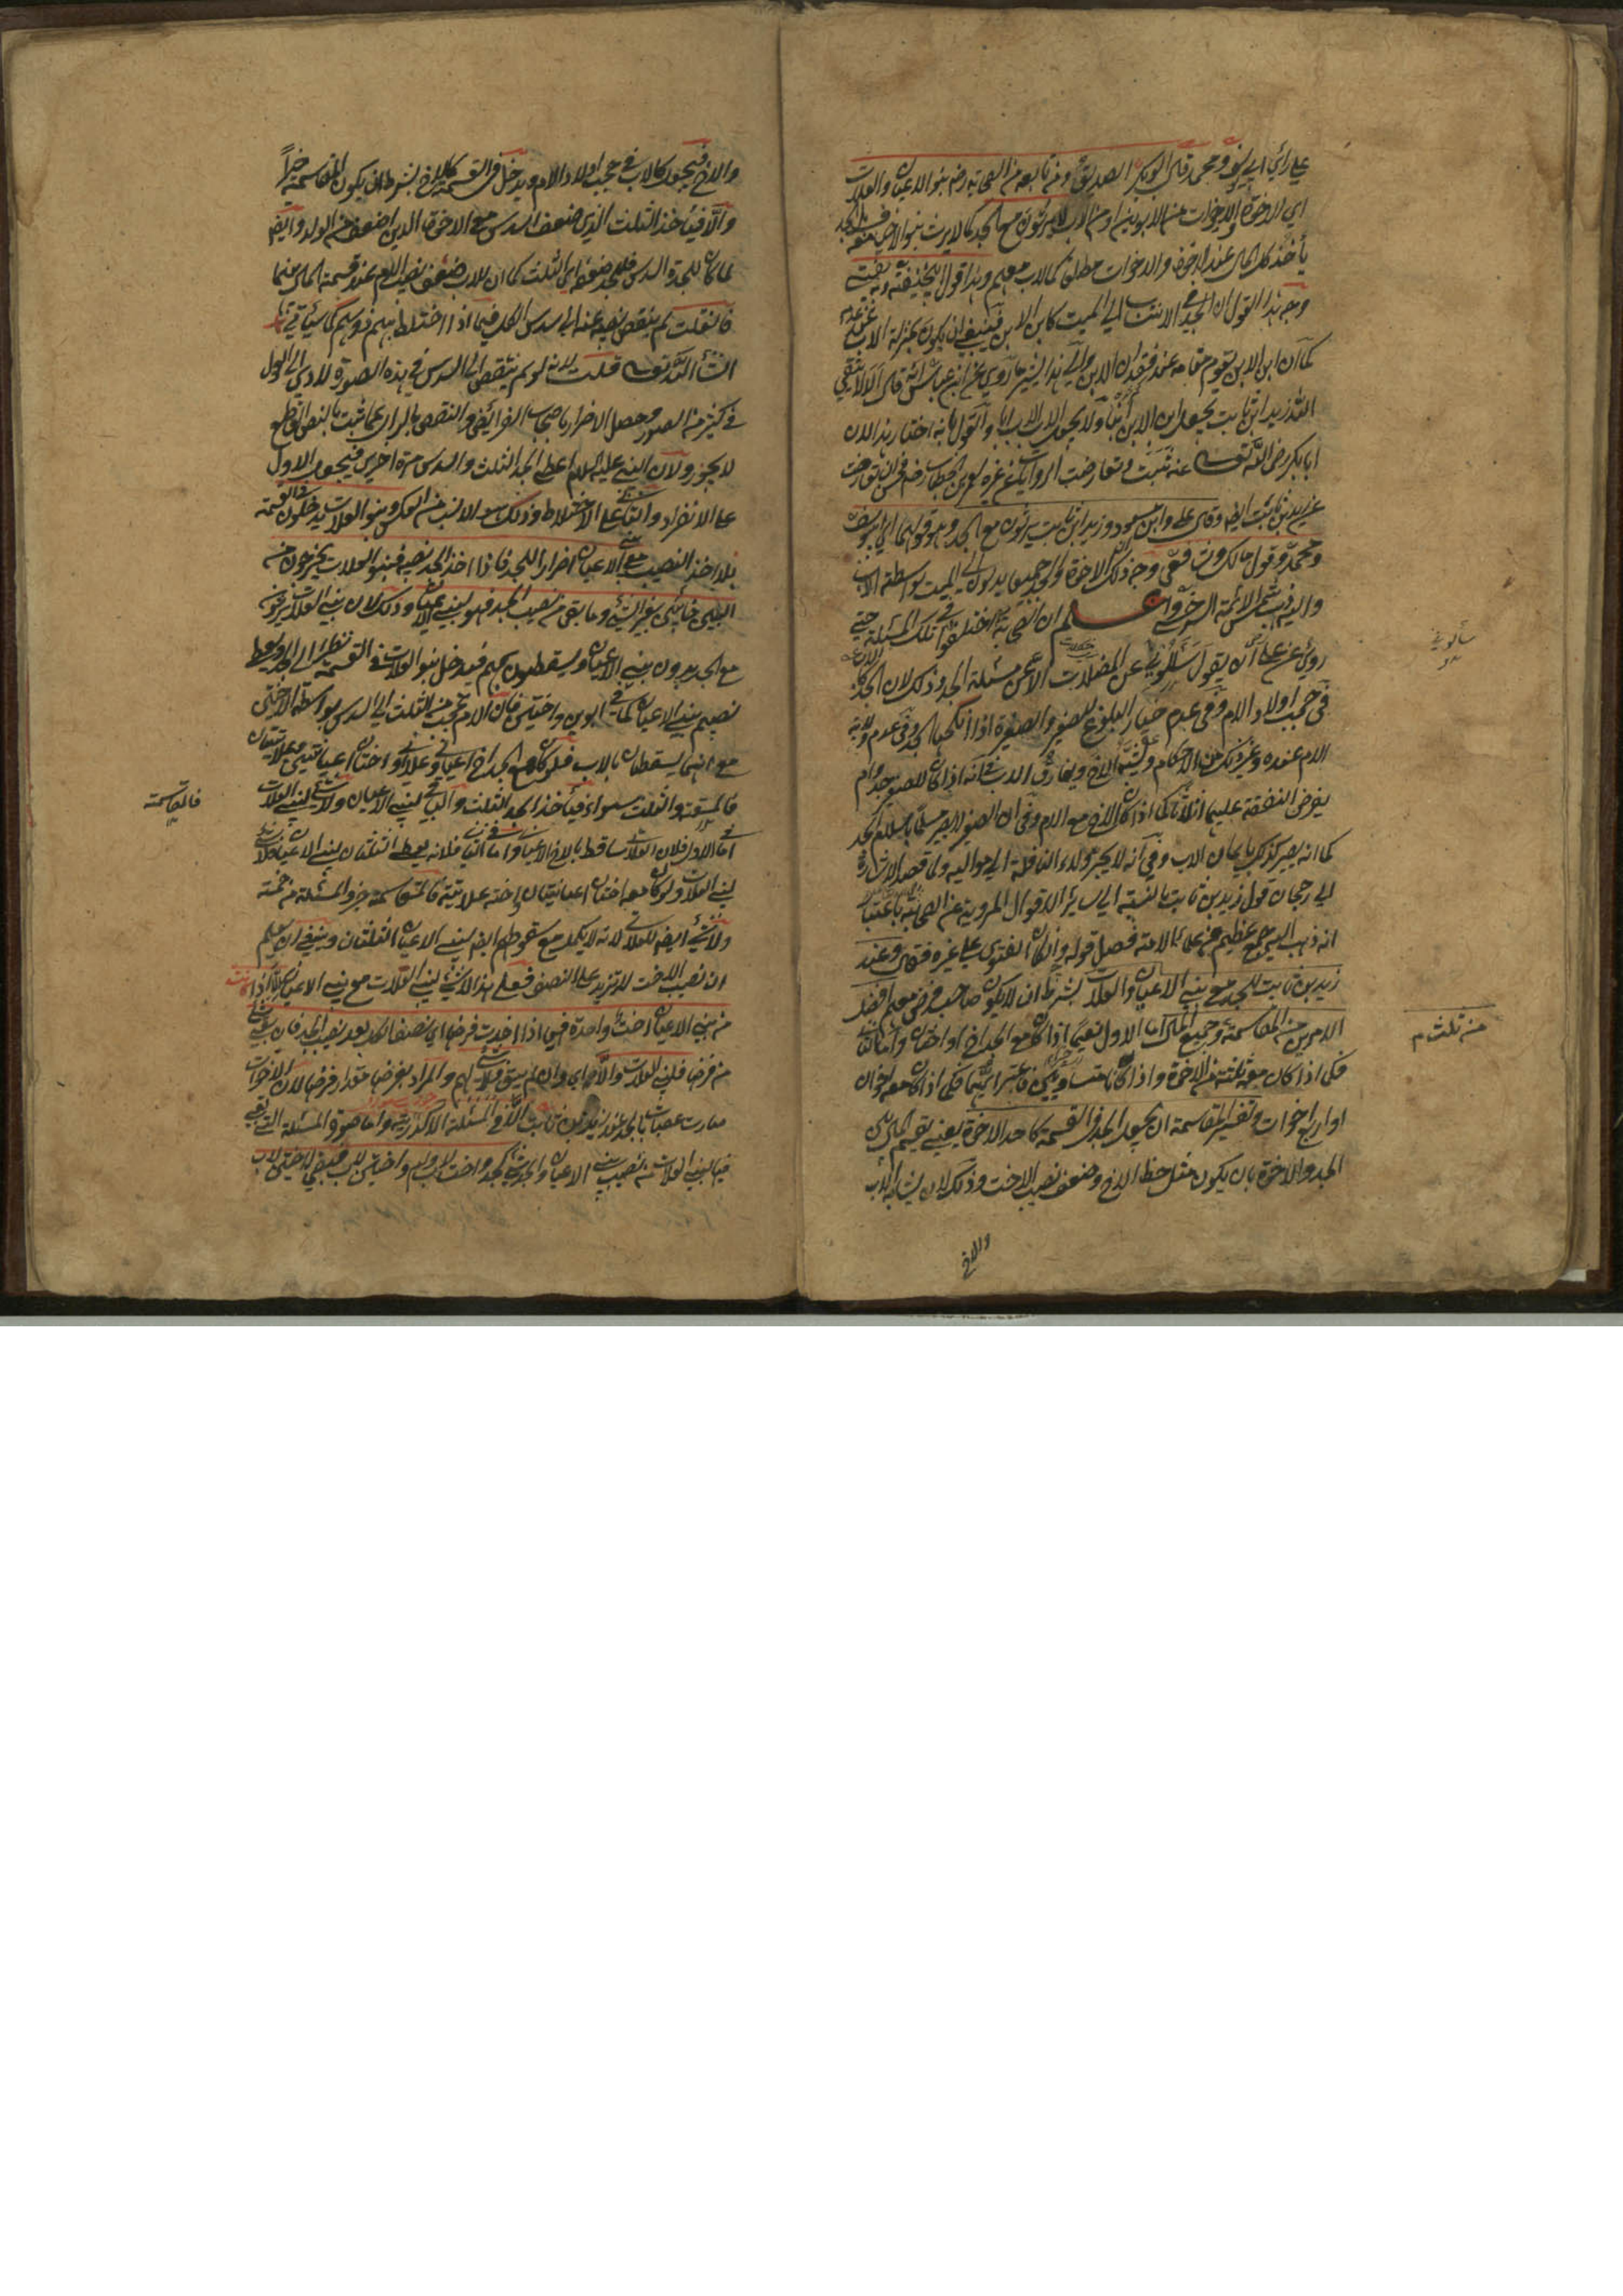 علي رأي ابي يوسف ومحمد قال ابو بكر الصديق ومن تابعه من الصحابة رضه بنو الاعيان والعلات
اي الاخوة والاخوات من الابوين او من الاب لا يرثون مع الجد كما لا يرث بنو الاخياف معه بل الجد
يأخذ كل المال عند الاخوة والاخوات مطلقا كالاب معهم وهذا قول ابي حنيفة وبه يفتي
وجه هذا القول ان الجد في الانتساب الي الميت كابن الابن فينبغي ان يكون بمنزلة الاب عند عدمه
كما ان ابن الابن يقوم مقامه عند فقدان الابن والي هذا يشير ما روي عن ابن عباس قال الا لا يتقي
الله زيد ابن ثابت يجعل ابن الابن ابنا ولا يجعل اب الاب ابا والقول ما به اختار هذا لان
ابا بكر رضي الله تعالى عنه ثبت وتعارضت الروايات عن غيره لعمر بن الخطاب رضه
عن زيد بن ثابت ايضا وقال علي وابن مسعود وزيد ابن ثابت يرثون مع الجد وهو قولهما اي ابو يوسف
ومحمد وقول مالك وشافعي وجه ذلك ان الاخوة والجد جميعا يدلون الي الميت بواسطة الاب
واليه ذهب شمس الائمة السرخسي واعلم ان الصحابة اختلفوا في تلك المسئلة حتي
روي عن علي انه يقول سلوني عن المعضلات الا عن مسئلة الجد وذلك لان الجد كالاب
في حجب اولاد الام وفي عدم خيار البلوغ للصغير والصغيرة اذا انكحها الجد وفي عدم ولاية
الام عنده وغير ذلك من الاحكام ويشبه الاخ ويفارق الاب في انه اذا كان للصغير جد وام
يفرض النفقة عليهما اثلاثا كما اذا كان الاخ مع الام وفي ان الصغير لا يصير مسلما باسلام الجد
كما انه يصير كذلك باسلام الاب وفي انه لا يجر ولاء النافلة الي مواليه ولما قصد الاشارة
الي رجحان قول زيد بن ثابت بالنسبة الي سائر الاقوال المروية عن الصحابة باعتبار
انه ذهب اليه جمع عظيم من علماء الامة فصل قوله وان كان الفتوي علي غيره فقال وعند
زيد بن ثابت للجد مع بني الاعيان والعلات بشرط ان لا يكون صاحب فرض معهم افضل
الامرين من المقاسمة وجميع المال اما الاول فكما اذا كان مع الجد اخ او اختان واما الثاني
فكما اذا كان معه ثلثة من الاخوة واذا كانا متساويين فاعتبر ايهما فكما اذا كان معه اخوان
او اربع اخوات وتفسير المقاسمة ان يجعل الجد في القسمة كاحد الاخوة يعني يقسم المال بين
الجد والاخوة بان يكون مثل حظ الاخ وضعف نصيب الاخت وذلك لانه يشابه الاب
والاخ
من ثلث م
والاخ فيجعل كالاب في حجب اولاد الام ويدخل في القسمة كالاخ بشرط ان يكون المقاسمة خيرا
والا فيأخذ الثلث الذي ضعف السدس مع الاخوة الذين اضعف من الولد وايضا
لما كان للجدة السدس فللجد ضعفه اي الثلث كما ان للاب ضعف نصيب الام عند قسمة المال بينهما
فان قلت لم ينقص نصيبه عنه الي سدس الكل فيما اذا اختلط بهم ذو سهم كما سيأتي
انشاء الله تعالى قلت لانه لو لم ينتقص الي السدس في هذه الصورة لادي الي العول
في كثير من الصور وحصل الاضرار باصحاب الفرائض والنقص بالرأي عما ثبت بالنص القاطع
لا يجوز ولان النبي عليه السلام اعطي الجد الثلث والسدس مرة اخري فيجعل الاول
علي الانفراد والثاني علي الاختلاط وذلك هو الانسب من العكس وبنو العلات يدخلون في القسمة
بلا اخذ النصيب مع بني الاعيان اضرارا للجد فاذا اخذ الجد نصيبه فبنو العلات يخرجون من
البين خائبين بغير شيء وما بقي من نصيب الجد فهو لبني الاعيان وذلك لان بني العلات يرثون
مع الجد بدون بني الاعيان ويسقطون بهم فيدخل بنو العلات في القسمة نظرا الي الجد ويعطي
نصيبهم بني الاعيان كما في ابوين واختين فان الام تحجب من الثلث الي السدس بواسطة الاختين
مع انهما يسقطان بالاب فلو كان مع الجد اخ اعياني وعلاتي او اختان اعيانيتين وعلاتيتان
فالمقاسمة والثلث سواء فيأخذ الجد الثلث والباقي لبني الاعيان ولا شيء لبني العلات
اما في الاول فلان العلاتي ساقط بالاخ الاعياني واما في الثاني فلانه يعطي الثلثان لبني الاعيان فلا شيء
لبني العلات ولو كان معه اختان اعيانيتان واخت علاتية فالمقاسمة خير والمسئلة من خمسة
ولا شيء ايضا للعلاتي لانه لا يكمل مع سقوطهم ايضا لبني الاعيان الثلثان وينبغي ان يعلم
ان نصيب الاخت لا تزيد علي النصف فعلي هذا لا شيء لبني العلات مع بني الاعيان الا اذا كانت
من بني الاعيان اخت واحدة فهي اذا اخذت فرضها اي نصف الكل بعد نصيب الجد فان بقي شيء
من فرضها فلبني العلات والا اي وان لم يبق فلا شيء لهم والمراد بفرضها مقدار فرضها لان الاخوات
صارت عصبات بالجد عند زيد بن ثابت الا في المسئلة الاكدرية واما صورة المسئلة التي بقي
فيها لبني العلات من نصيب بني الاعيان والجد شيء كجد واخت لاب وام واختين لاب فبقي للاختين لاب
فالمقاسمة